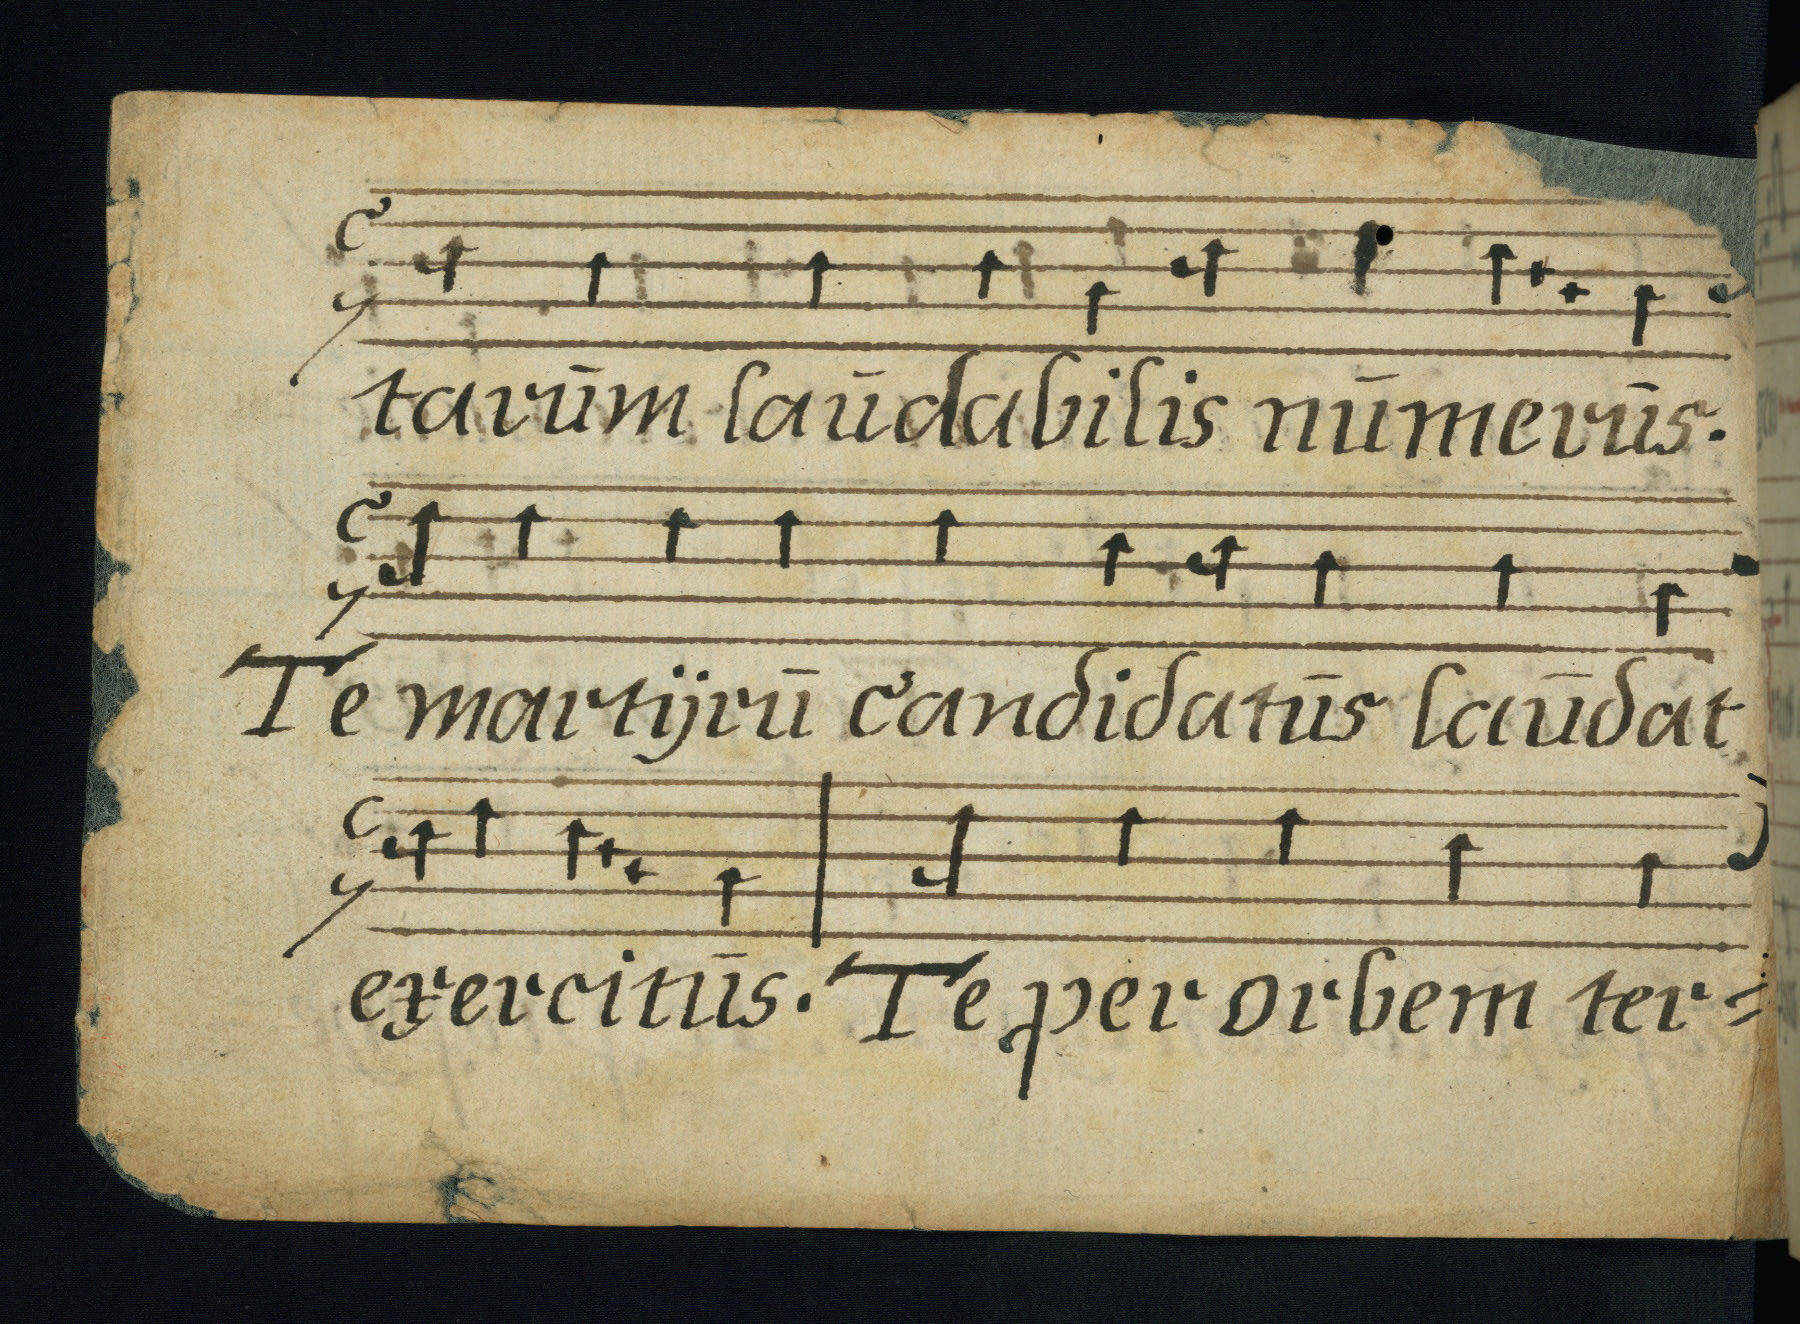 tarūm laūdabilis nūmerūs.
Te martijrū candidatūs laūdat
exercitūs. Te per orbem ter=